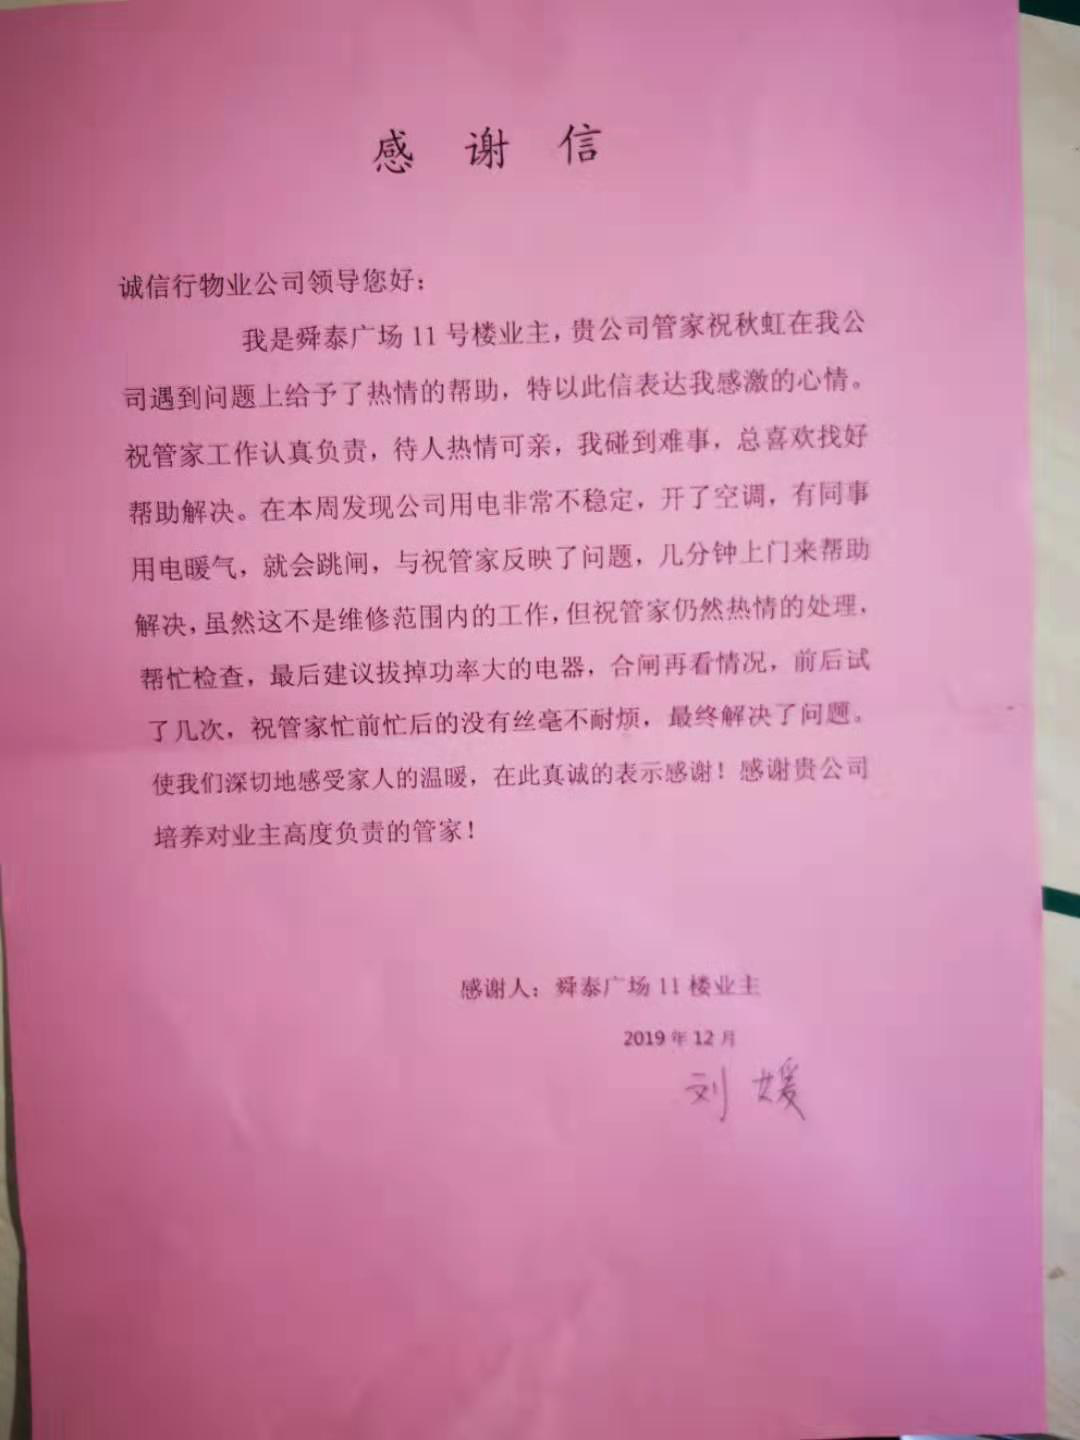 感 谢 信
诚信行物业公司领导您好：
我是舜泰广场 11 号楼业主，贵公司管家祝秋虹在我公
司遇到问题上给予了热情的帮助，特以此信表达我感激的心情。
祝管家工作认真负责，待人热情可亲，我碰到难事，总喜欢找好
帮助解决。在本周发现公司用电非常不稳定，开了空调，有同事
用电暖气，就会跳闸，与祝管家反映了问题，几分钟上门来帮助
解决，虽然这不是维修范围内的工作，但祝管家仍然热情的处理，
帮忙检查，最后建议拔掉功率大的电器，合闸再看情况，前后试
了几次，祝管家忙前忙后的没有丝毫不耐烦，最终解决了问题。
使我们深切地感受家人的温暖，在此真诚的表示感谢！感谢贵公司
培养对业主高度负责的管家！
感谢人：舜泰广场 11 楼业主
2019 年 12 月
刘媛